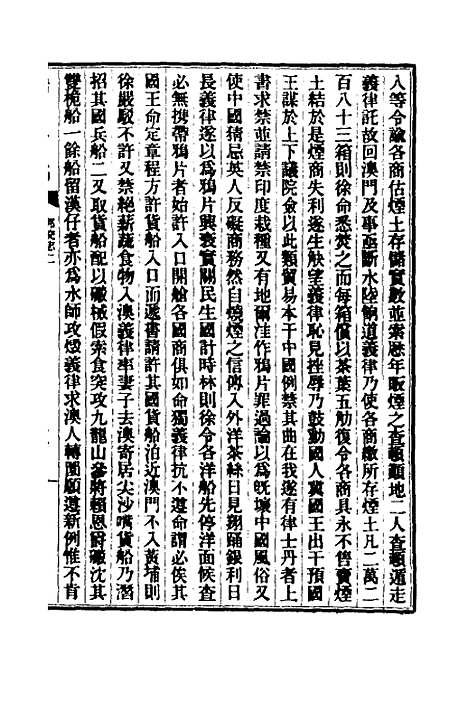 入等令諭各商估煙土存儲實數並索歷年販煙之查頓顛地二人查頓遁走
義律託故回澳門及事亟斷水陸餉道義律乃使各商繳所存煙土凡二萬二
百八十三箱則徐命悉焚之而每箱償以茶葉五觔復令各商具永不售賣煙
土結於是煙商失利遂生觖望義律恥見挫辱乃鼓動國人冀國王出干預國
王謀於上下議院僉以此類貿易本干中國例禁其曲在我遂有律士丹者上
書求禁並請禁印度栽種又有地爾洼作鴉片罪過論以爲既壞中國風俗又
使中國猜忌英人反礙商務然自燒煙之信傳入外洋茶絲日見翔踊銀利日
長義律遂以爲鴉片興衰實關民生國計時林則徐令各洋船先停洋面候查
必無攜帶鴉片者始許入口開艙各國商俱如命獨義律抗不遵命謂必俟其
國王命定章程方許貨船入口而遞書請許其國貨船泊近澳門不入黃埔則
徐嚴駁不許又禁絕薪蔬食物入澳義律率妻子去澳寄居尖沙嘴貨船乃潛
招其國兵船二又取貨船配以礮械假索食突攻九龍山參將賴恩爵礮沈其
雙桅船一餘船留漢仔者亦爲水師攻燬義律求澳人轉圜願遵新例惟不肯